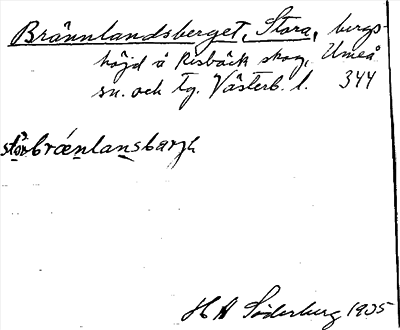 Brännlandsberget, Stora, bergs-
höjd å Risbäck skog, Umeå
sn. och tg. Västerb. l. 344
storbrǽnlansbarjh
H A Söderberg 1905